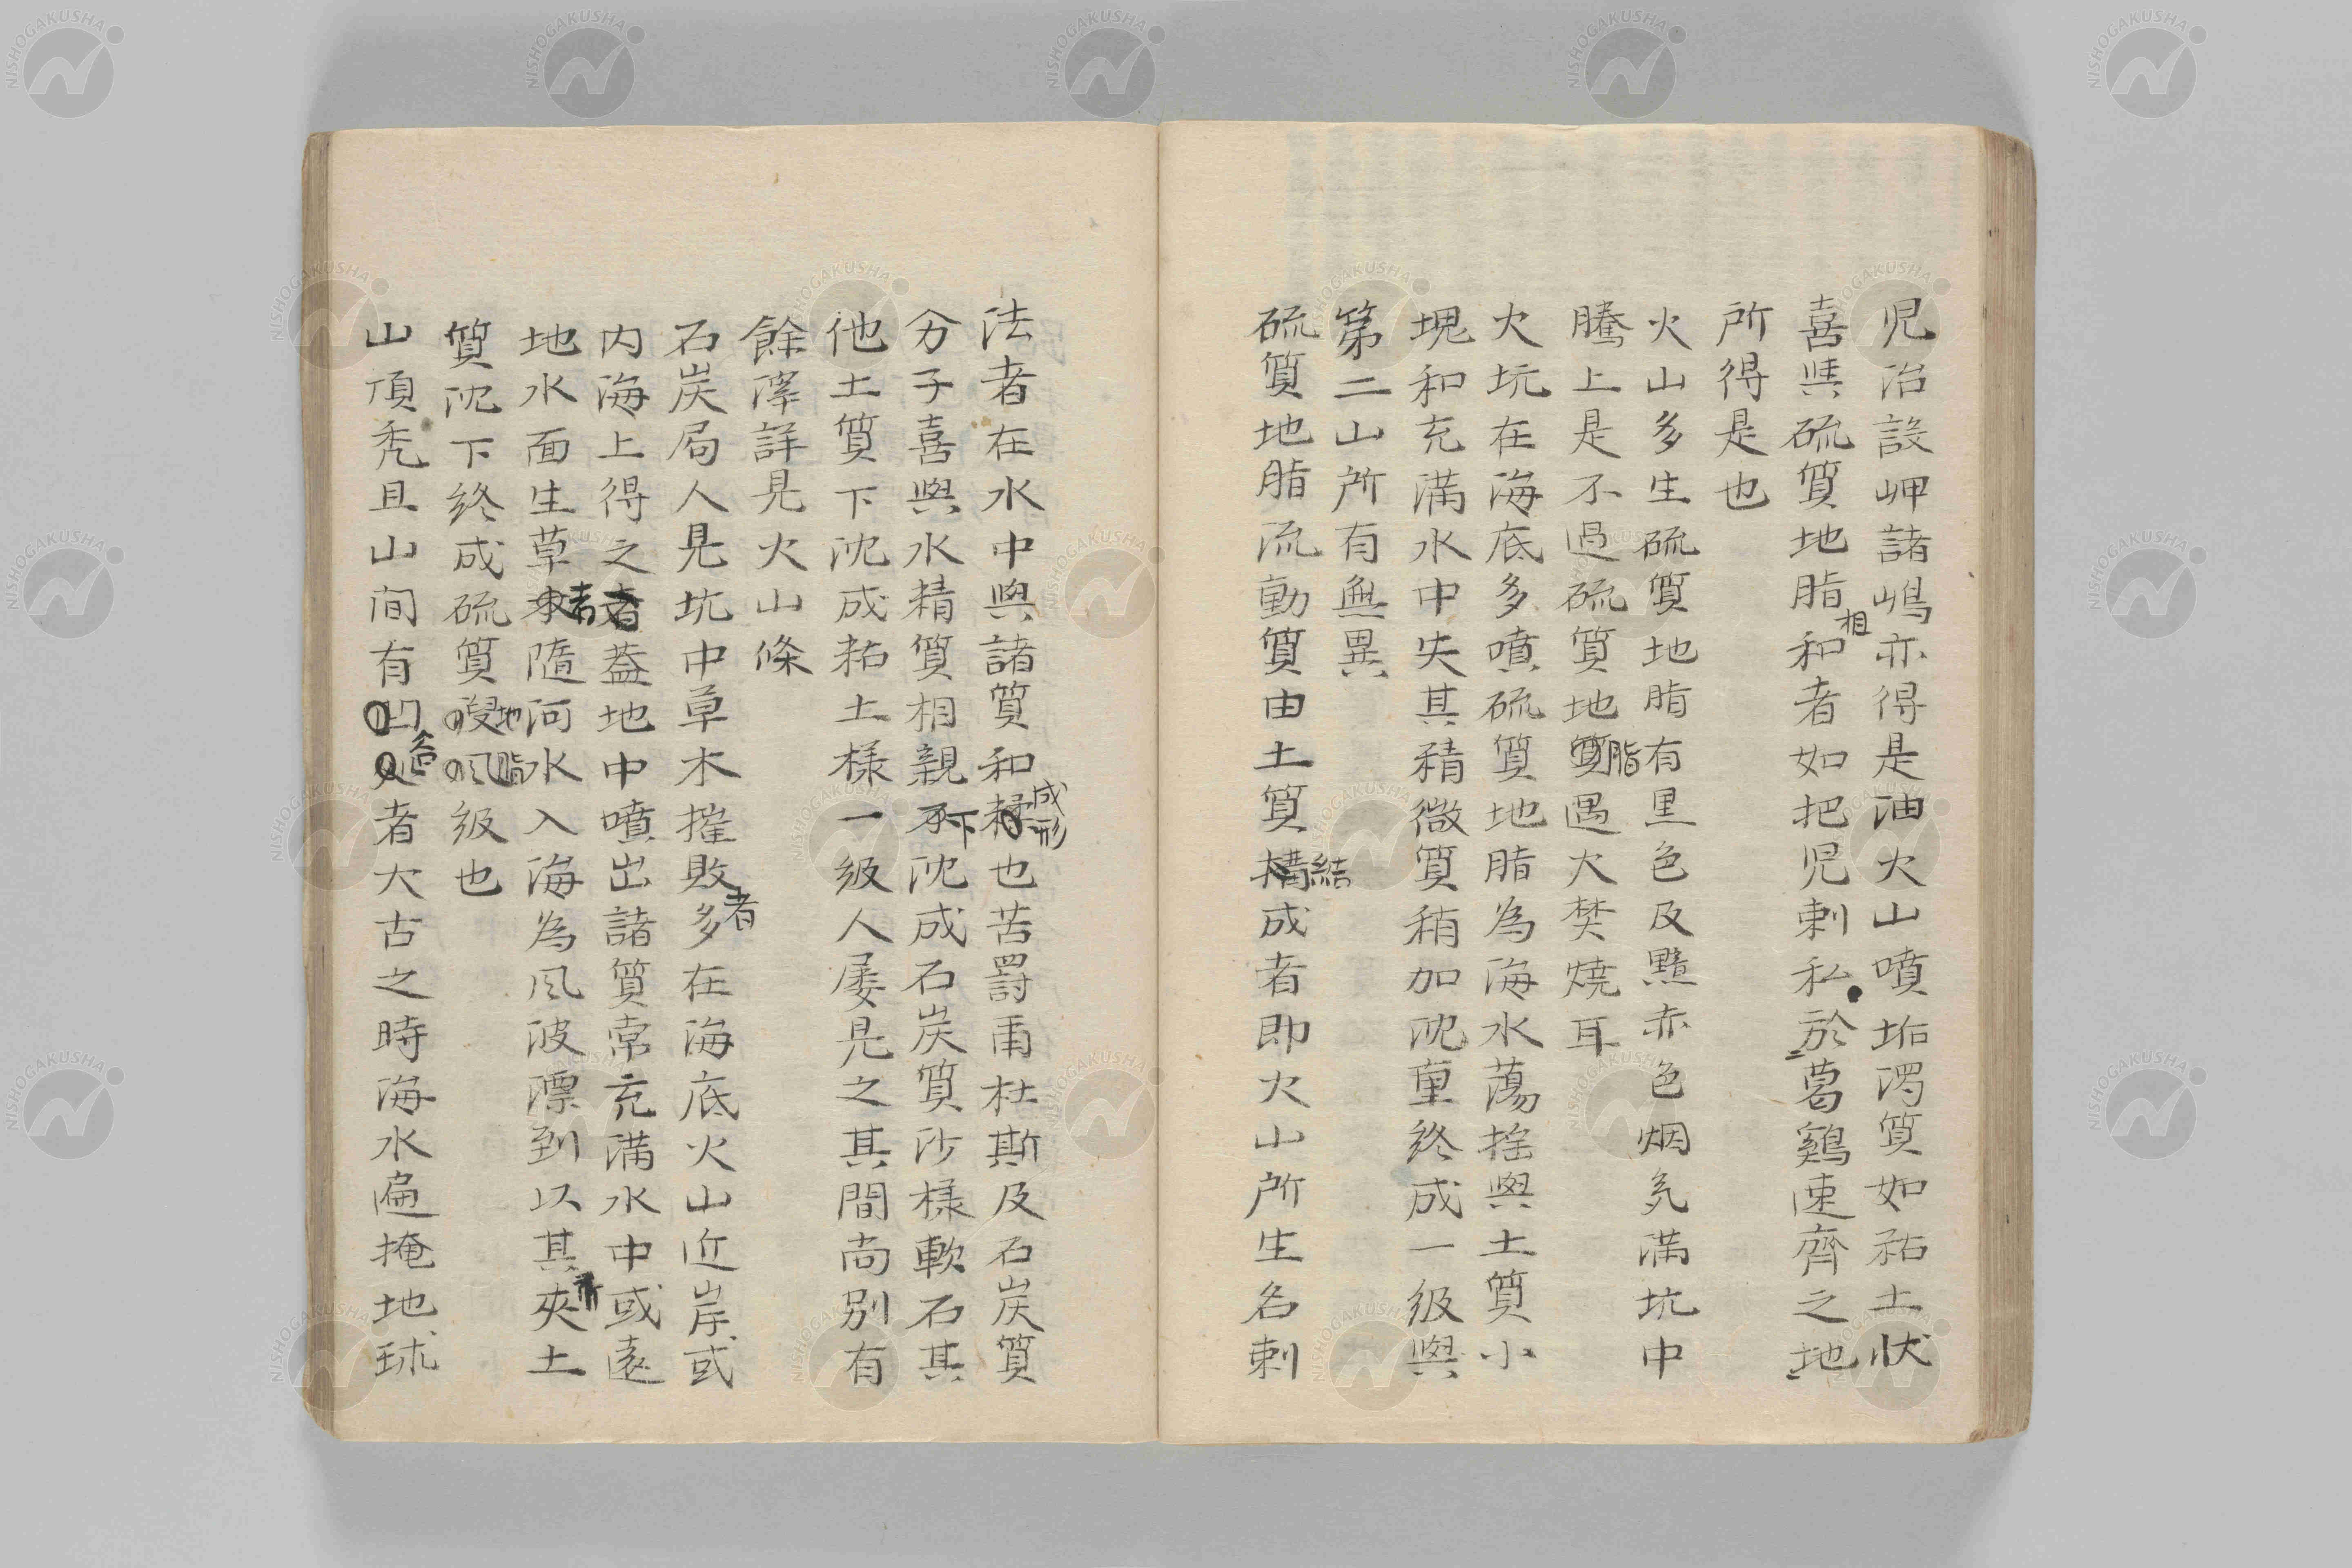 児冶設岬諸嶋亦得是油火山噴垢濁質如祏土状
喜與硫質地脂相和者如把児剌私於葛鷄速齊之地
所得是也
火山多生硫質地脂有黒色及黯赤色烟気満坑中
騰上是不過硫質地脂遇大焚焼耳
火坑在海底多噴硫質地脂為海水蕩揺與土質小
塊和充満水中失其精微質稍加沈重終成一級與
第二山所有無異
硫質地脂流動質由土質結成者即火山所生名剌
法者在水中與諸質和成形也苦爵甫杜斯及石炭質
分子喜與水精質相親下沈成石炭質沙様軟石其
他土質下沈成祏土様一級人屡見之其間尚別有
餘澤詳見火山條
石炭局人見坑中草木摧敗者多在海底火山近岸或
内海上得之者蓋地中噴出諸質常充満水中或遠
地水面生草木者隨河水入海為風波漂到以其夾土
質沈下終成硫質地脂級也
山頂禿且山間有谷者大古之時海水遍掩地球